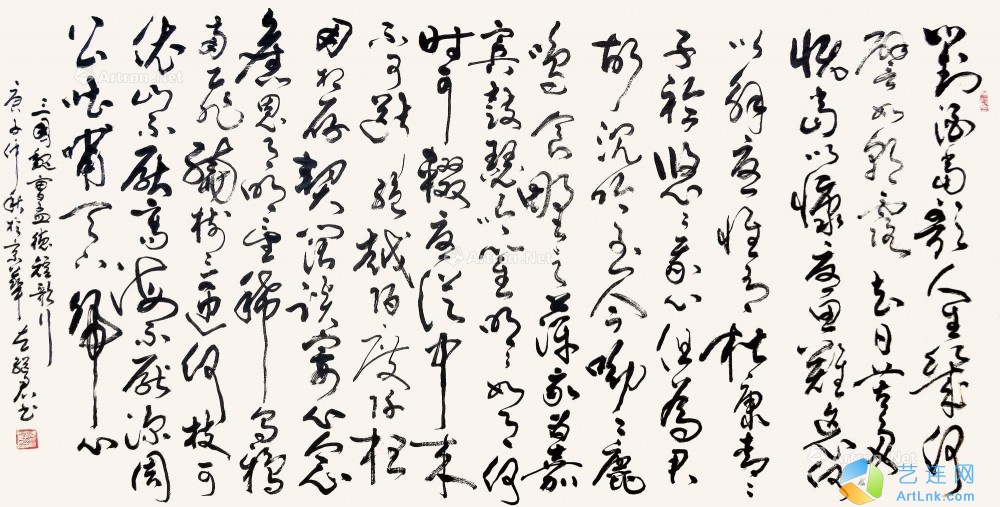 對酒當歌人生幾何
譬如朝露去日苦多
慨當以慷憂思難忘何
以解憂惟有杜康青々
子衿悠々我心但為君
故沉吟至今呦々鹿
鳴食野之蘋我有嘉
賓鼓瑟吹笙明々如月何
時可掇憂從中來
不可斷絕越陌度阡枉
用相存契闊談宴心念
舊恩月明星稀烏鵲
南飛繞樹三匝何枝可
依山不厭高海不厭深周
公吐哺天下歸心
三國魏曹孟德短歌行
庚子仲秋於京華
艺连网
ArtLnk.com
Artron.Net